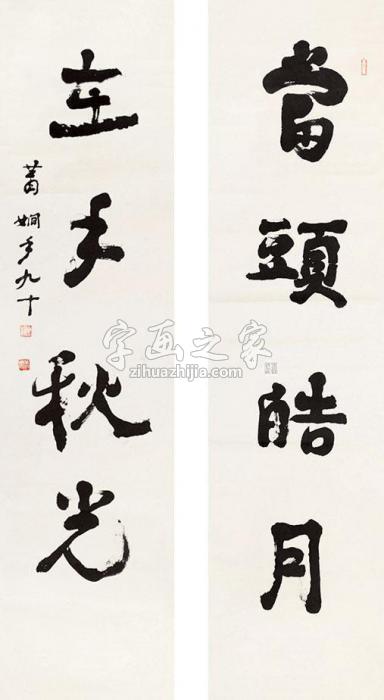 當頭皓月
在手秋光
蕭嫻年九十
字画之家
zihuazhijia.com